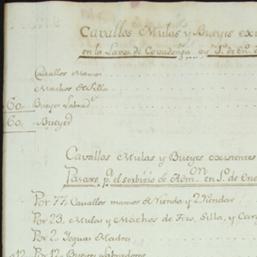 Cavallos Mulas y Bueyes exis
en la Lavor de Covadonga, en 1º de En
Cavallos Mansos
Machos de Silla
60. Bueyes Labrad.s
60. Bueyes
Cavallos Mulas y Bueyes existentes
p.a el servicio de Adm.on en 1º de Ene
Por 77. Cavallos mansos de Rienda y
Por 23. Mulas y Machos de Tiro, Silla, y Car
Por 2. Yeguas Madres
Por 12. Bueyes Labradores